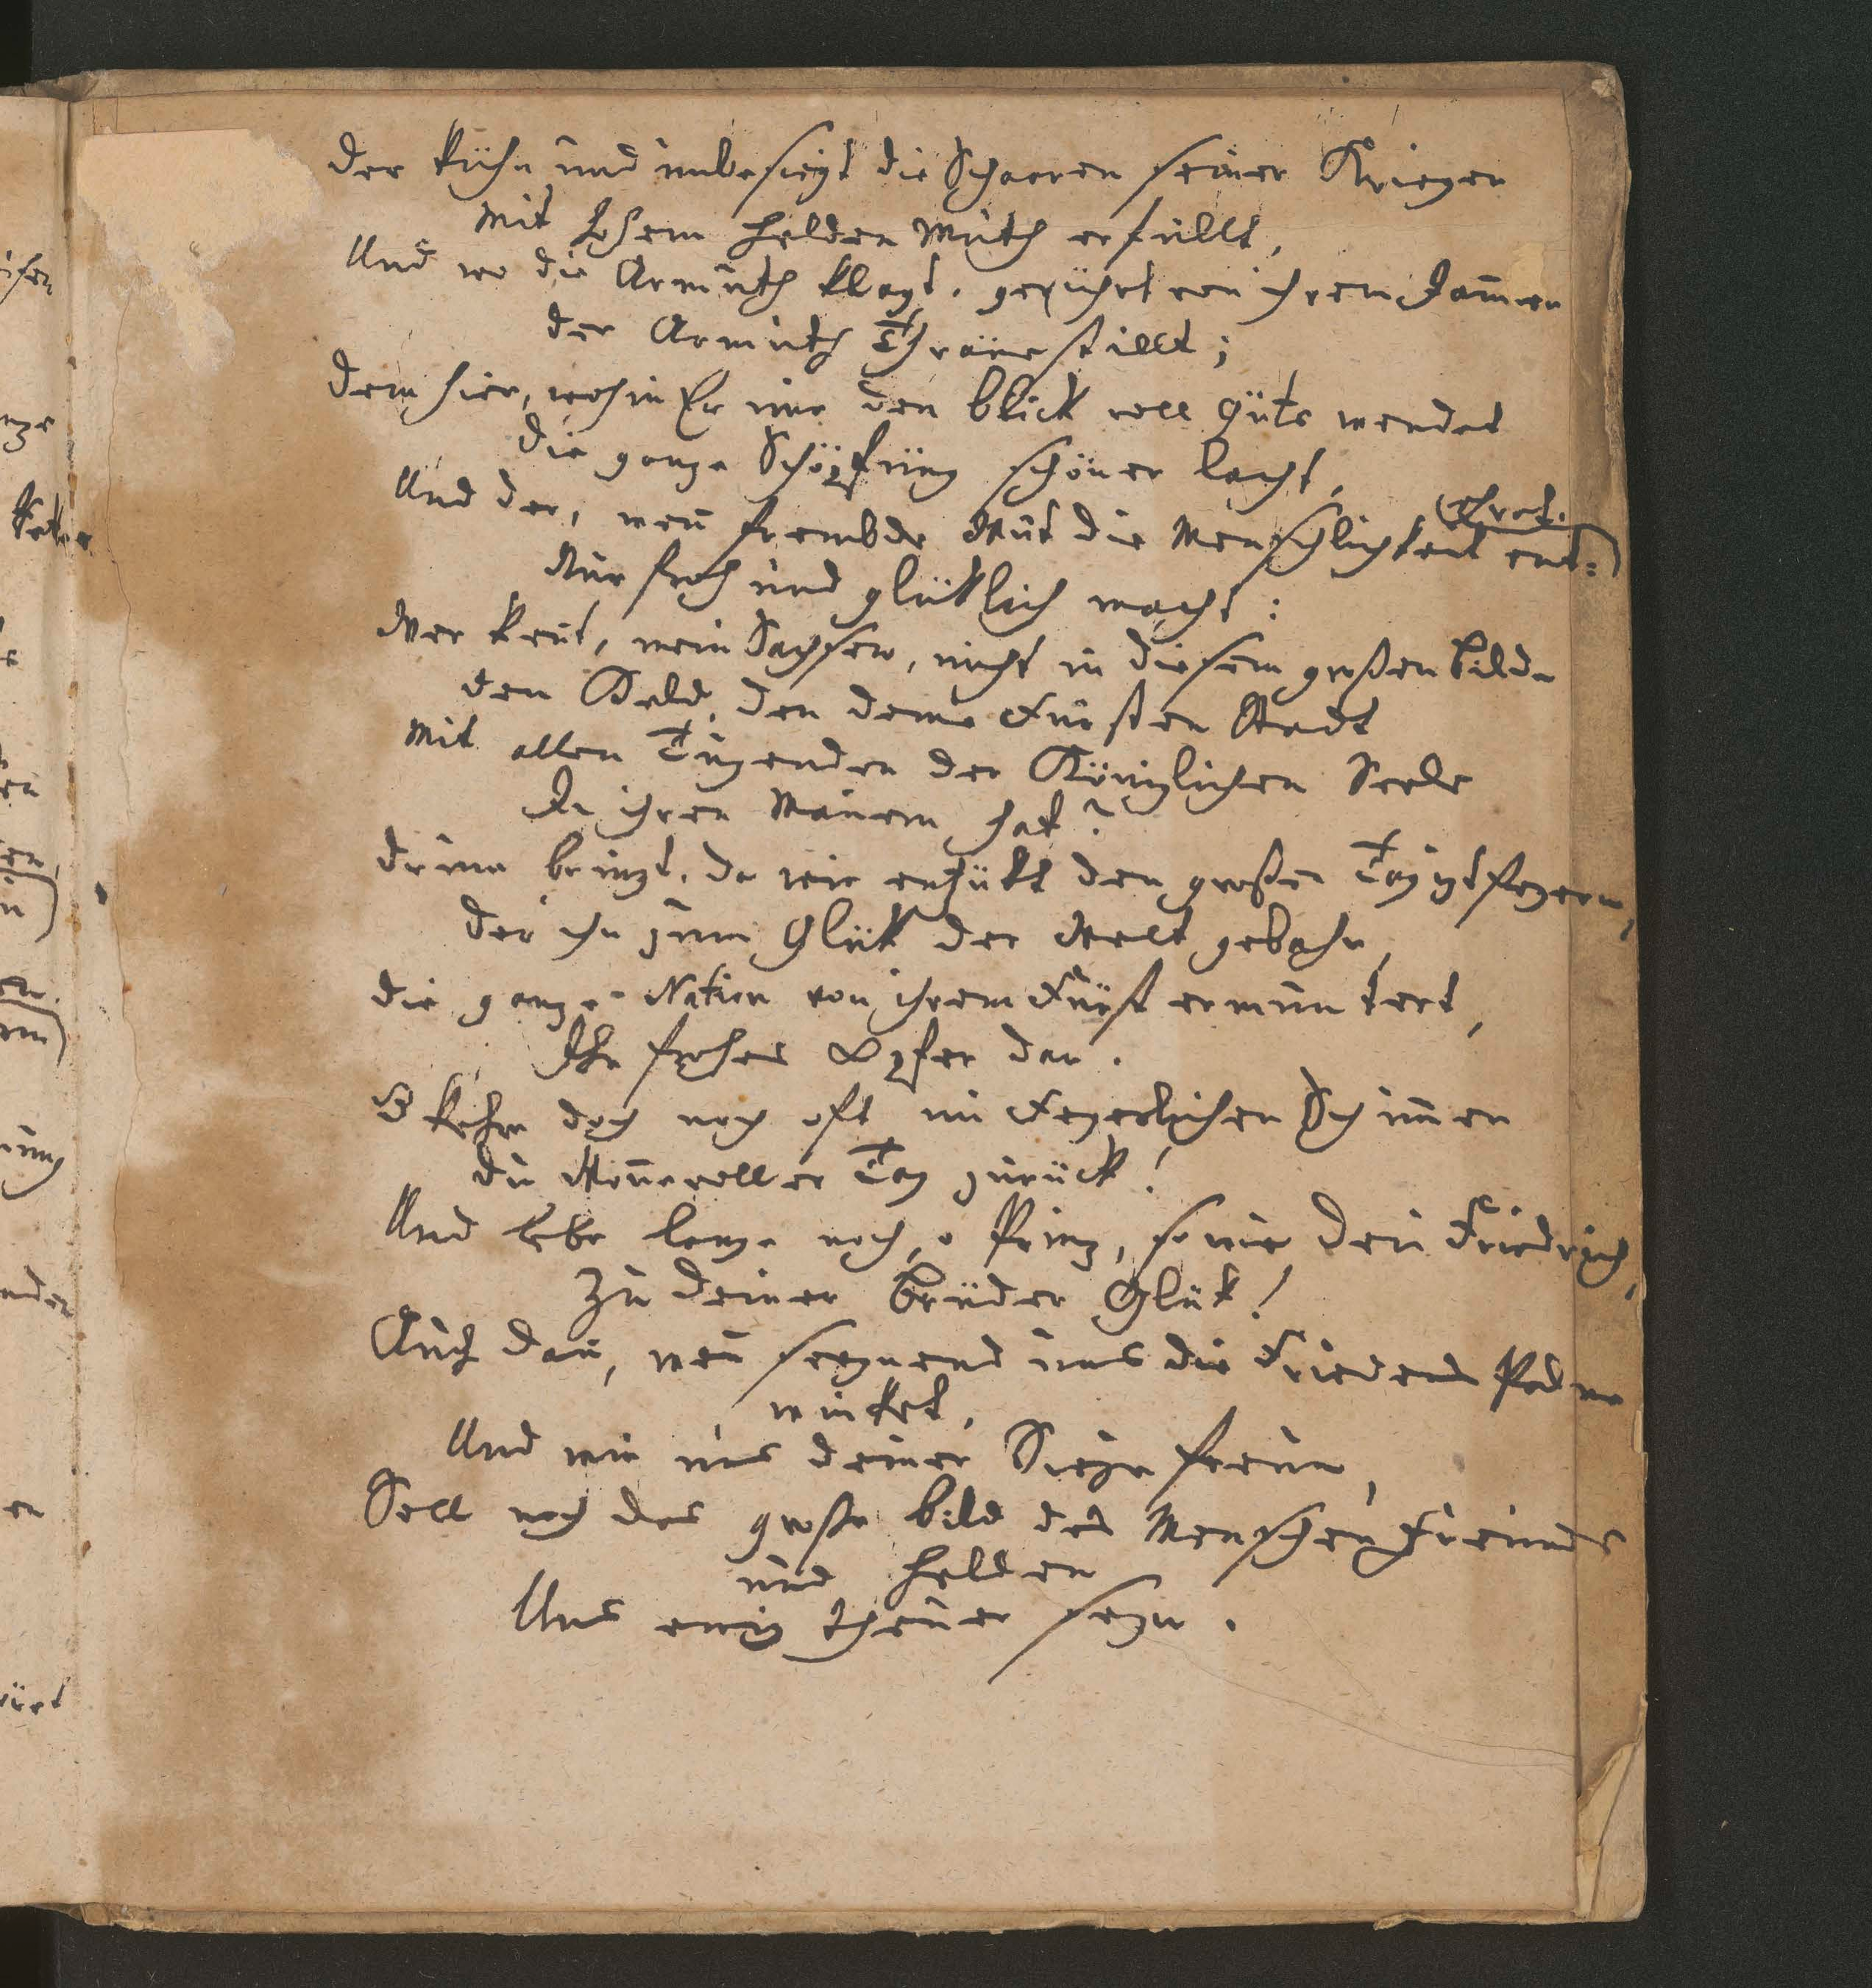 Der kühn und unbesiegt die Schaaren seiner Krieger
Mit hohem Helden Muth erfüllt,
Und wo die Armuth klagt, gerührt von ihrem Jam̄er
der Armuth Thräne stillt;
dem hier, wohin Er nur den Blick voll Güte wendet
die ganze Schöpfung schöner lacht,
Und der, wen̄ fremde Wut die Menschlichkeit ent=
ehret.
Nur froh und glüklich macht:
Wer kent, mein Sachsen, nicht in diesem großen Bilde
den Held, den deine Fürsten Stadt
Mit allen Tugenden der Königlichen Seele
In ihren Mauern hat?
drum bringt, da wir entzükt den großen Tag izt feyern,
der ihn zum Glük der Welt gebahr,
die ganze Nation von ihrem Fürst ermuntert,
Ihr frohes Opfer dar.
O kehre doch noch oft im Feyerlichen Schim̄er
du Won̄evoller Tag zurück!
Und lebe lange noch, o Prinz, so wie dein Friedrich,
Zu deiner Brüder Glük!
Auch dan̄, wen̄ seegnend uns die Friedens Palme
winket,
Und wir uns deiner Siege freun,
Soll noch das große Bild des Menschen Freundes
und Helden
Uns ewig theuer seyn.